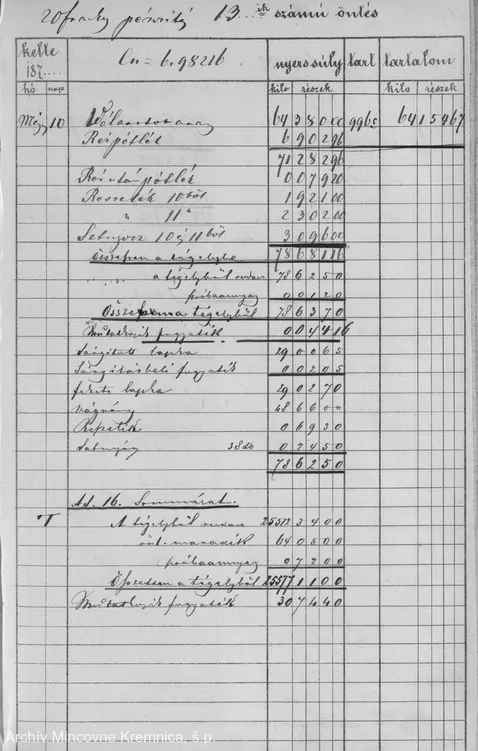 20 franky 13 ik számú öntés
kelte 187 Cu = 6.98216 nyerssúly tart tartalom
hó nap kilo részek kilo részek
Máj 10 Választott arany 64 38000 9965 64 15467
Rézpótlék 6 90296
71 28296
Rézutánpótlék 0 07920
Reszeték 10 ből 1 92100
" 11 " 2 30200
Selnyesz 10 és 11 ből 3 09600
Összesen a tégelybe 78 68116
a tégelyből rudan 78 6250
próbaanyag 0 0120
Összesen a tégelyből 78 6370
Mutatkozik fogyaték 0 04416
Sárgított lapka 29 0065
Sárgításbeli fogyaték 0 0205
fekete lapka 29 0270
Vágvány 48 6600
Repeték 0 6930
38 db 0 2450
78 6250
Ad. 16. Sommárat.
A tégelyből rudan 25512 3400
önt. maradék 64 0500
próbaanyag 0 7200
Összesen a tégelyből 25577 1100
Mutatkozik fogyaték 30 7440
Archív Mincovne Kremnica, š.p.